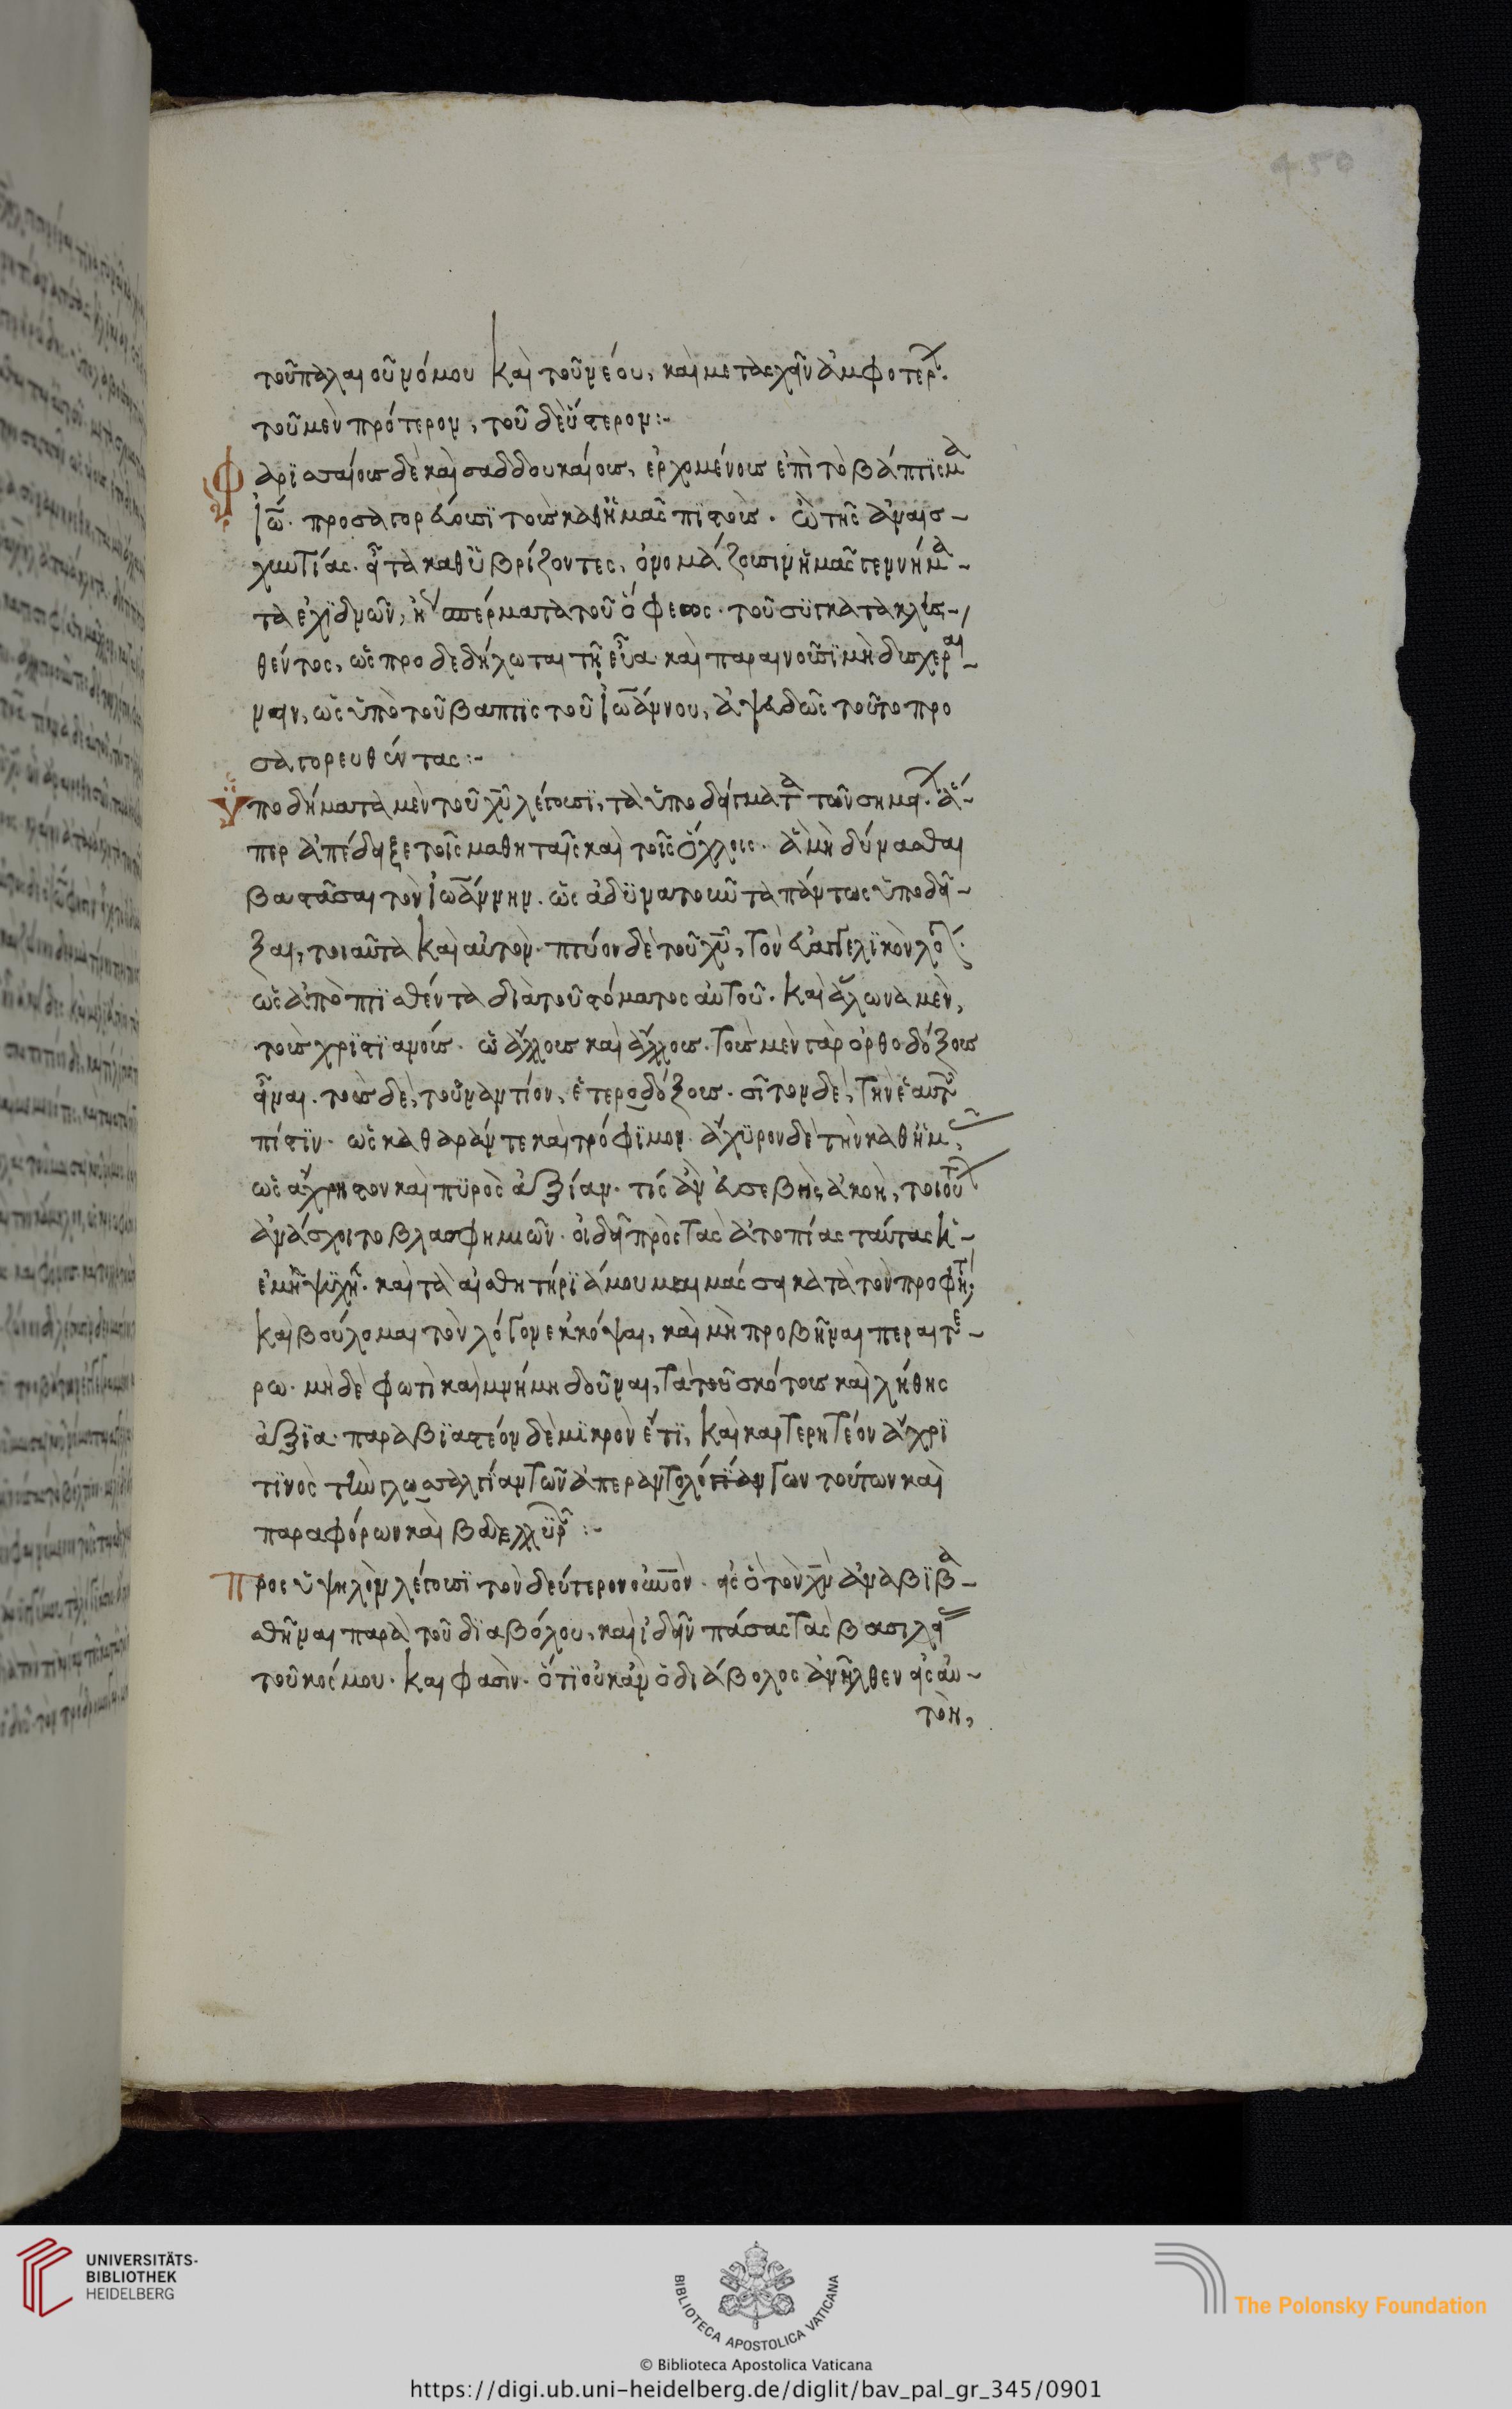 450
τοῦ παλαιοῦ νόμου καὶ τοῦ νέου, καὶ μετασχεῖν ἀμφοτέρ.
τοῦ μὲν πρότερον, τοῦ δεύτερον:-
Φαρϊσαίους δὲ καὶ σαδδουκαίους, ἐρχομένους ἐπὶ τὸ βάπτϊσμα
Ἰω. προσαγορεύουσϊ τοὺς καθ ἡμᾶς πϊστούς. ὢ τῆς ἀναισ-
χυντίας. εἶτα καθϋβρίζοντες, ὀνομάζουσιν ἡμᾶς γεννήμα-
τα ἐχϊδνῶν, ἢ σπέρματα τοῦ ὄφεως. τοῦ συγκατακλι-
θέντος, ὡς προδεδήλωται τῇ εὔα. καὶ παραινοῦσϊ μὴ δυσχεραί-
νειν, ὡς ὑπὸ τοῦ βαπτϊσ τοῦ Ἰωάννου, ἀψευδῶς τοῦτο προ
σαγορευθέντας:-
Ὑποδήματα μὲν τοῦ χυ λέγουσϊ, τὰ ὑποδείγματα τῶν σημεί. ἅ-
περ ἀπέδειξε τοῖς μαθηταῖς καὶ τοῖς ὄχλοις. ἃ μὴ δύνασθαι
βαστάσαι τὸν Ἰωάννην. ὡς ἀδϋνατοῦντα πάντως ὑποδεῖ-
ξαι, τοιαῦτα καὶ αὐτόν. πτύον δὲ τοῦ χυ, τὸν εὐαγγελϊκὸν λό
ὡς ἀποπτϊσθέντα διὰ τοῦ στόματος αὐτοῦ. καὶ ἅλωνα μὲν,
τοὺς χρϊστϊανούς. ὡς ἄλλους καὶ ἄλλους. τοὺς μὲν γὰρ ὀρθοδόξους
εἶναι. τοὺς δὲ, τοὐναντίον, ἑτεροδόξους. σῖτον δὲ, τὴν ἑαυτῶν
πίστϊν. ὡς καθαράν τε καὶ τρόφϊμον. ἄχϋρον δὲ τὴν καθ ἡμ,
ὡς ἄχρηστον καὶ πϋρὸς ἀξίαν. τίς ἂν εὐσεβὴς ἀκοὴ, τοιούτ
ἀνάσχοιτο βλασφημιῶν. οἰδεῖ πρὸς τὰς ἀτοπίας ταύτας ἡ-
ἐμὴ ψϋχή. καὶ τὰ αἰσθητήρϊά μου μαιμάσσει κατὰ τὸν προφήτ,
καὶ βούλομαι τὸν λόγον ἐκκόψαι, καὶ μὴ προβῆναι περαιτέ-
ρω. μὴ δὲ φωτὶ καὶ μνήμη δοῦναι, τὰ τοῦ σκότους καὶ λήθης
ἄξϊα. παραβϊαστέον δὲ μϊκρὸν ἔτϊ, καὶ καρτερητέον ἄχρϊ
τϊνὸς τῶν γλωσσαλγϊαντῶν ἀπεραντολόγϊάντων τούτων καὶ
παραφόρων καὶ βδελλϋρ:-
Πρὸς ὑψηλὸν λέγουσϊ τὸν δεύτερον οὐνον. εἰς ὃ τὸν χν ἀναβϊβα-
σθῆναι παρὰ τοῦ δϊαβόλου, καὶ ἰδεῖν πάσας τὰς βασιλεί
τοῦ κόσμου. καὶ φασὶν. ὅτϊ οὐκ ἂν ὁ διάβολος ἀνῆλθεν εἰς αὐ-
τὸν,
UNIVERSITÄTS-
BIBLIOTHEK
HEIDELBERG
BIBLIOTECA APOSTOLICA VATICANA
The Polonsky Foundation
© Biblioteca Apostolica Vaticana
https://digi.ub.uni-heidelberg.de/diglit/bav_pal_gr_345/0901